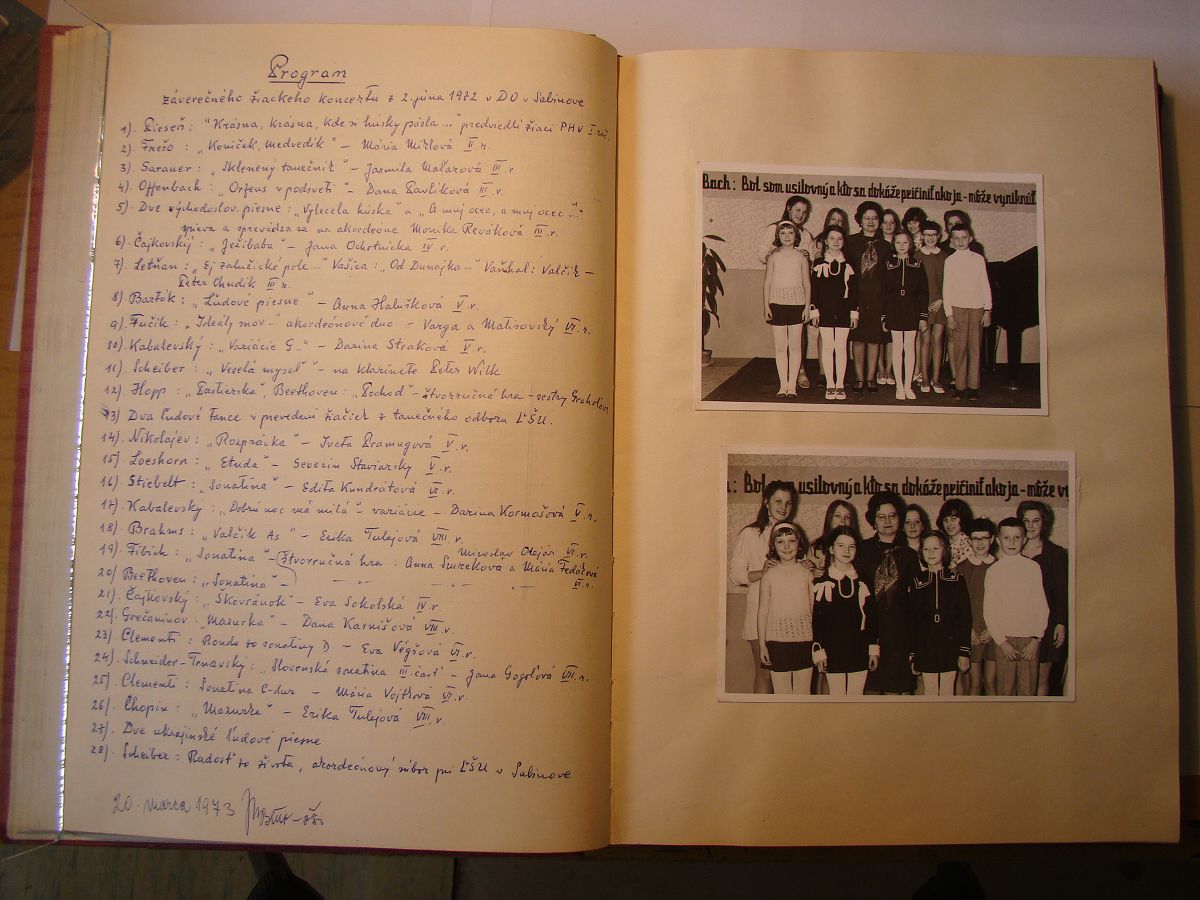 Program
záverečného žiackeho koncertu z 2. júna 1972 v DO v Sabinove
1). Pieseň: "Krásna, krásna, kde si húsky pásla..." predviedli žiaci PHV I. roč.
2). Frešo: „Koníček, medvedík" – Mária Mirlová II. r.
3). Sarauer: „Sklenený tanečník" – Jarmila Maľarová III. r
4). Offenbach: „Orfeus v podsvetí" – Dana Pavlíková III. r.
5). Dve východoslov. piesne: „Vylecela húska" a „A muj ocec, a muj ocec..."
spieva a sprevádza sa na akordeóne Monika Reváková III. r.
6). Čajkovský: „Ježibaba" – Jana Ochotnícka IV. r.
7). Letňan: „Ej zalužické pole..." Vašica: „Od Dunajka..." Vaňhal: Valčík –
Peter Chudík III. r.
8). Bartók: „Ľudové piesne" – Anna Halušková V. r.
9). Fučík: „Ideály snov..." akordeónové duo – Varga a Matisovský VI. r.
10). Kabalevský: „Variácie G.." – Darina Straková V. r.
11). Scheiber: „Veselá myseľ" – na klarinete Peter Wilk
12). Hopp: „Pastierska", Beethoven: „Pochod" – štvorručná hra – sestry
13). Dva ľudové tance v prevedení žiačiek z tanečného odboru ĽŠU.
14). Nikolajev: „Rozprávka" – Iveta Pramugová V. r.
15). Loeshorn: „Etuda" – Severín Staviarsky V. r.
16). Stiebelt: „Sonatína" – Edita Kundrátová VI. r.
17). Kabalevsky: „Dobrú noc má milá" – variácie – Darina Kormošová V. r.
18). Brahms: „Valčík As" – Erika Tulejová VIII. r.
19). Fibich: „Sonatína" – štvorručná hra: Miroslav VI. r.
Anna Smreková a Mária Fedáčová
20). Beethoven: „Sonatína" – –„– –„– –„– VI. r.
21). Čajkovský: „Škovránok" – Eva Sokolská IV. r.
22). Grečaninov „Mazurka" – Dana Karnišová VIII. r.
23). Clementi: Rondo zo sonatíny D – Eva Végšová VI. r.
24). Schneider-Trnavský: „Slovenská sonatína III. časť" – Jana Gogoľová VII. r.
25). Clementi: Sonatína C-dur – Mária Vojtková VI. r.
26). Chopin: „Mazurka" – Erika Tulejová VIII. r.
27). Dve ukrajinské ľudové piesne
28). Scheiber: Radosť zo života, akordeónový súbor pri ĽŠU v Sabinove
20. marca 1973
Bach: Bol som usilovný a kto sa dokáže pričiniť ako ja - môže vyniknúť
: Bol som usilovný a kto sa dokáže pričiniť ako ja - môže vy